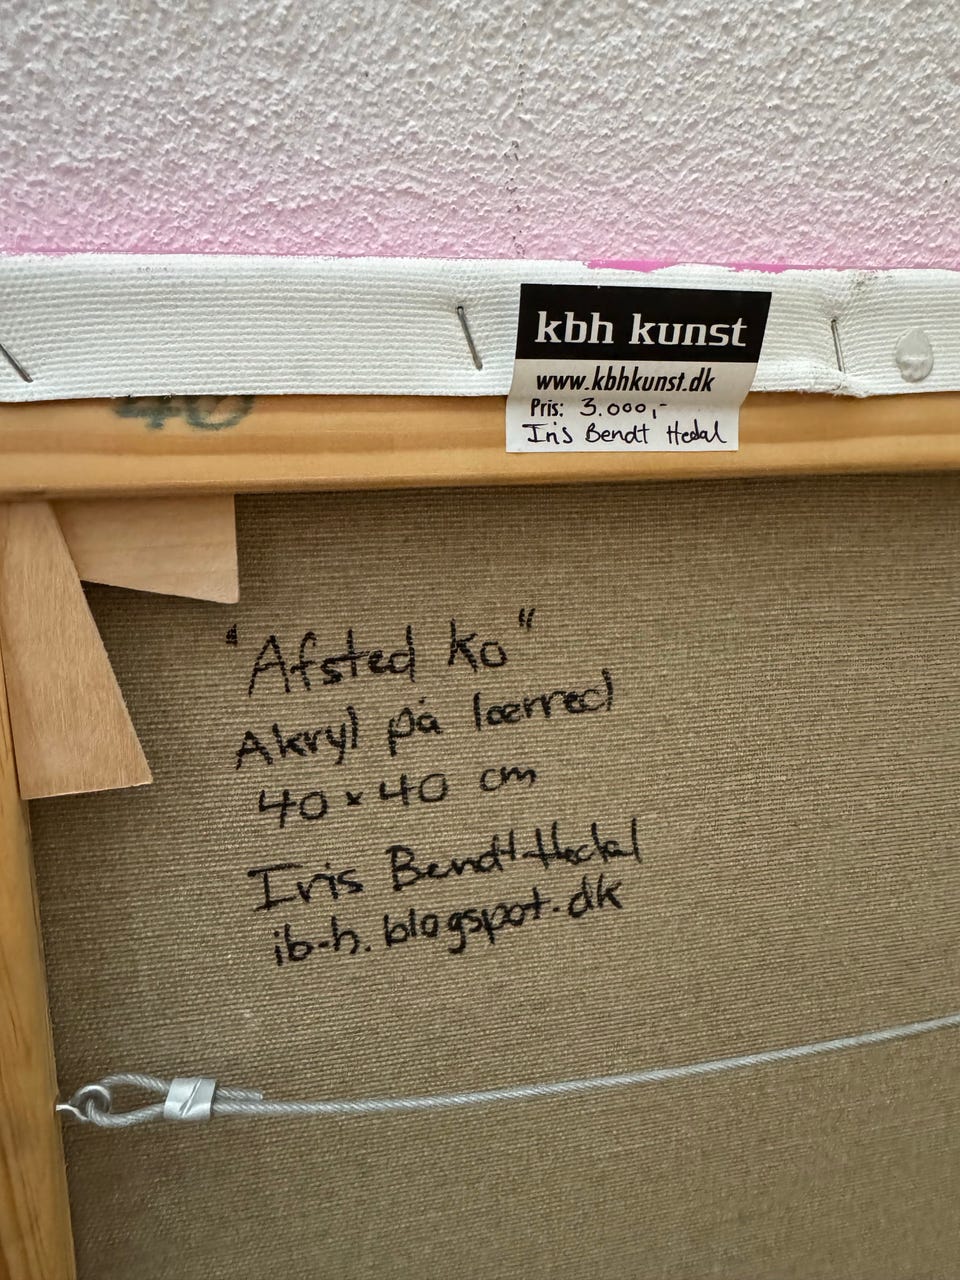 40
kbh kunst
www.kbhkunst.dk
Pris: 3.000,-
Iris Bendt Hedal
"Afsted Ko"
Akryl på lærred
40 x 40 cm
Iris Bendt Hedal
ib-h.blogspot.dk